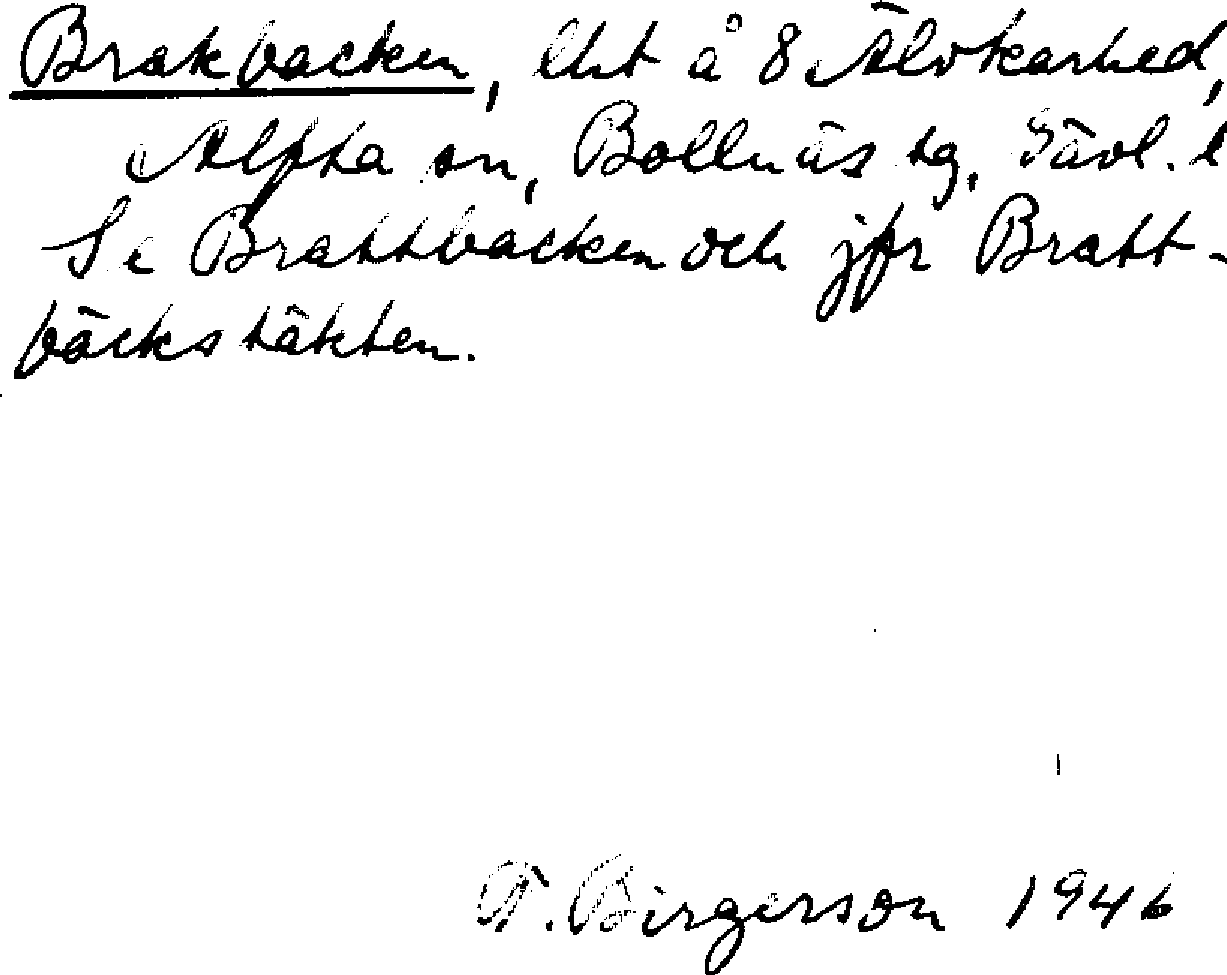 Brakbacken, lht å 8 Älvkarhed,
Alfta sn, Bollnäs tg, Gävl. l
Se Brattbacken och jfr Bratt-
bäckstäkten.
T. Birgerson 1946